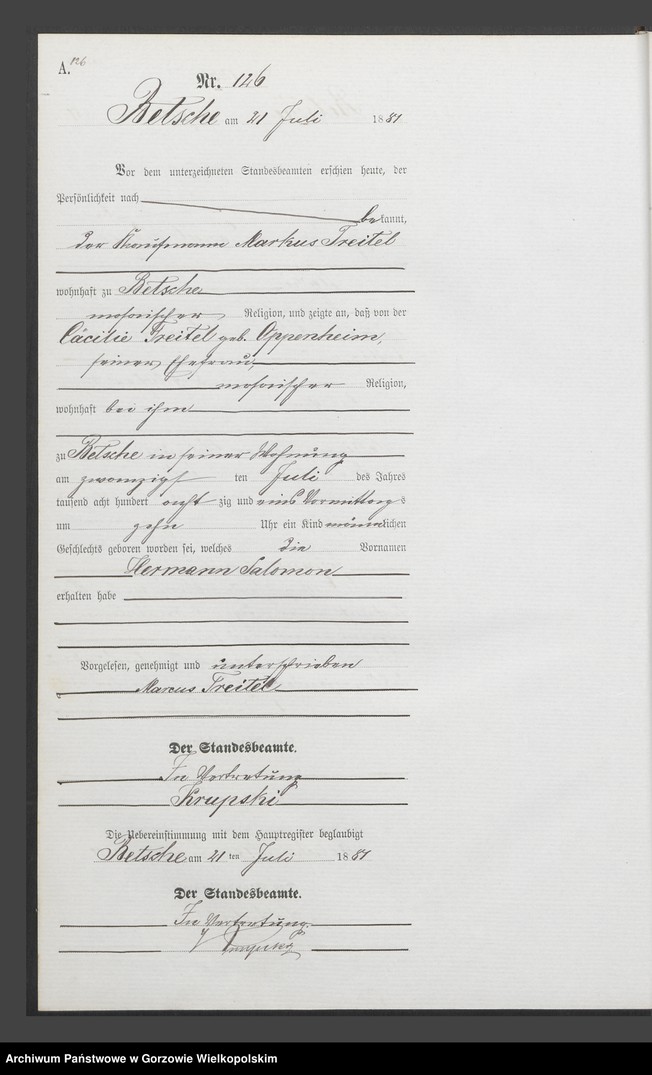 A. 126
Nr. 126
Betsche am 21 Juli 1881
Vor dem unterzeichneten Standesbeamten erschien heute, der
Persönlichkeit nach
bekannt,
der Kaufmann Markus Treitel
wohnhaft zu Betsche
mosaischer Religion, und zeigte an, daß von der
Cäcilie Treitel geb. Oppenheim,
seiner Ehefrau,
mosaischer Religion,
wohnhaft bei ihm
zu Betsche in seiner Wohnung
am zwanzigsten ten Juli des Jahres
tausend acht hundert acht zig und eins Vormittags
um zehn Uhr ein Kind männlichen
Geschlechts geboren worden sei, welches die Vornamen
Hermann Salomon
erhalten habe
Vorgelesen, genehmigt und unterschrieben
Marcus Treitel
Der Standesbeamte.
In Vertretung
Krupski
Die Uebereinstimmung mit dem Hauptregister beglaubigt
Betsche am 21 ten Juli 1881
Der Standesbeamte.
In Vertretung.
Archiwum Państwowe w Gorzowie Wielkopolskim